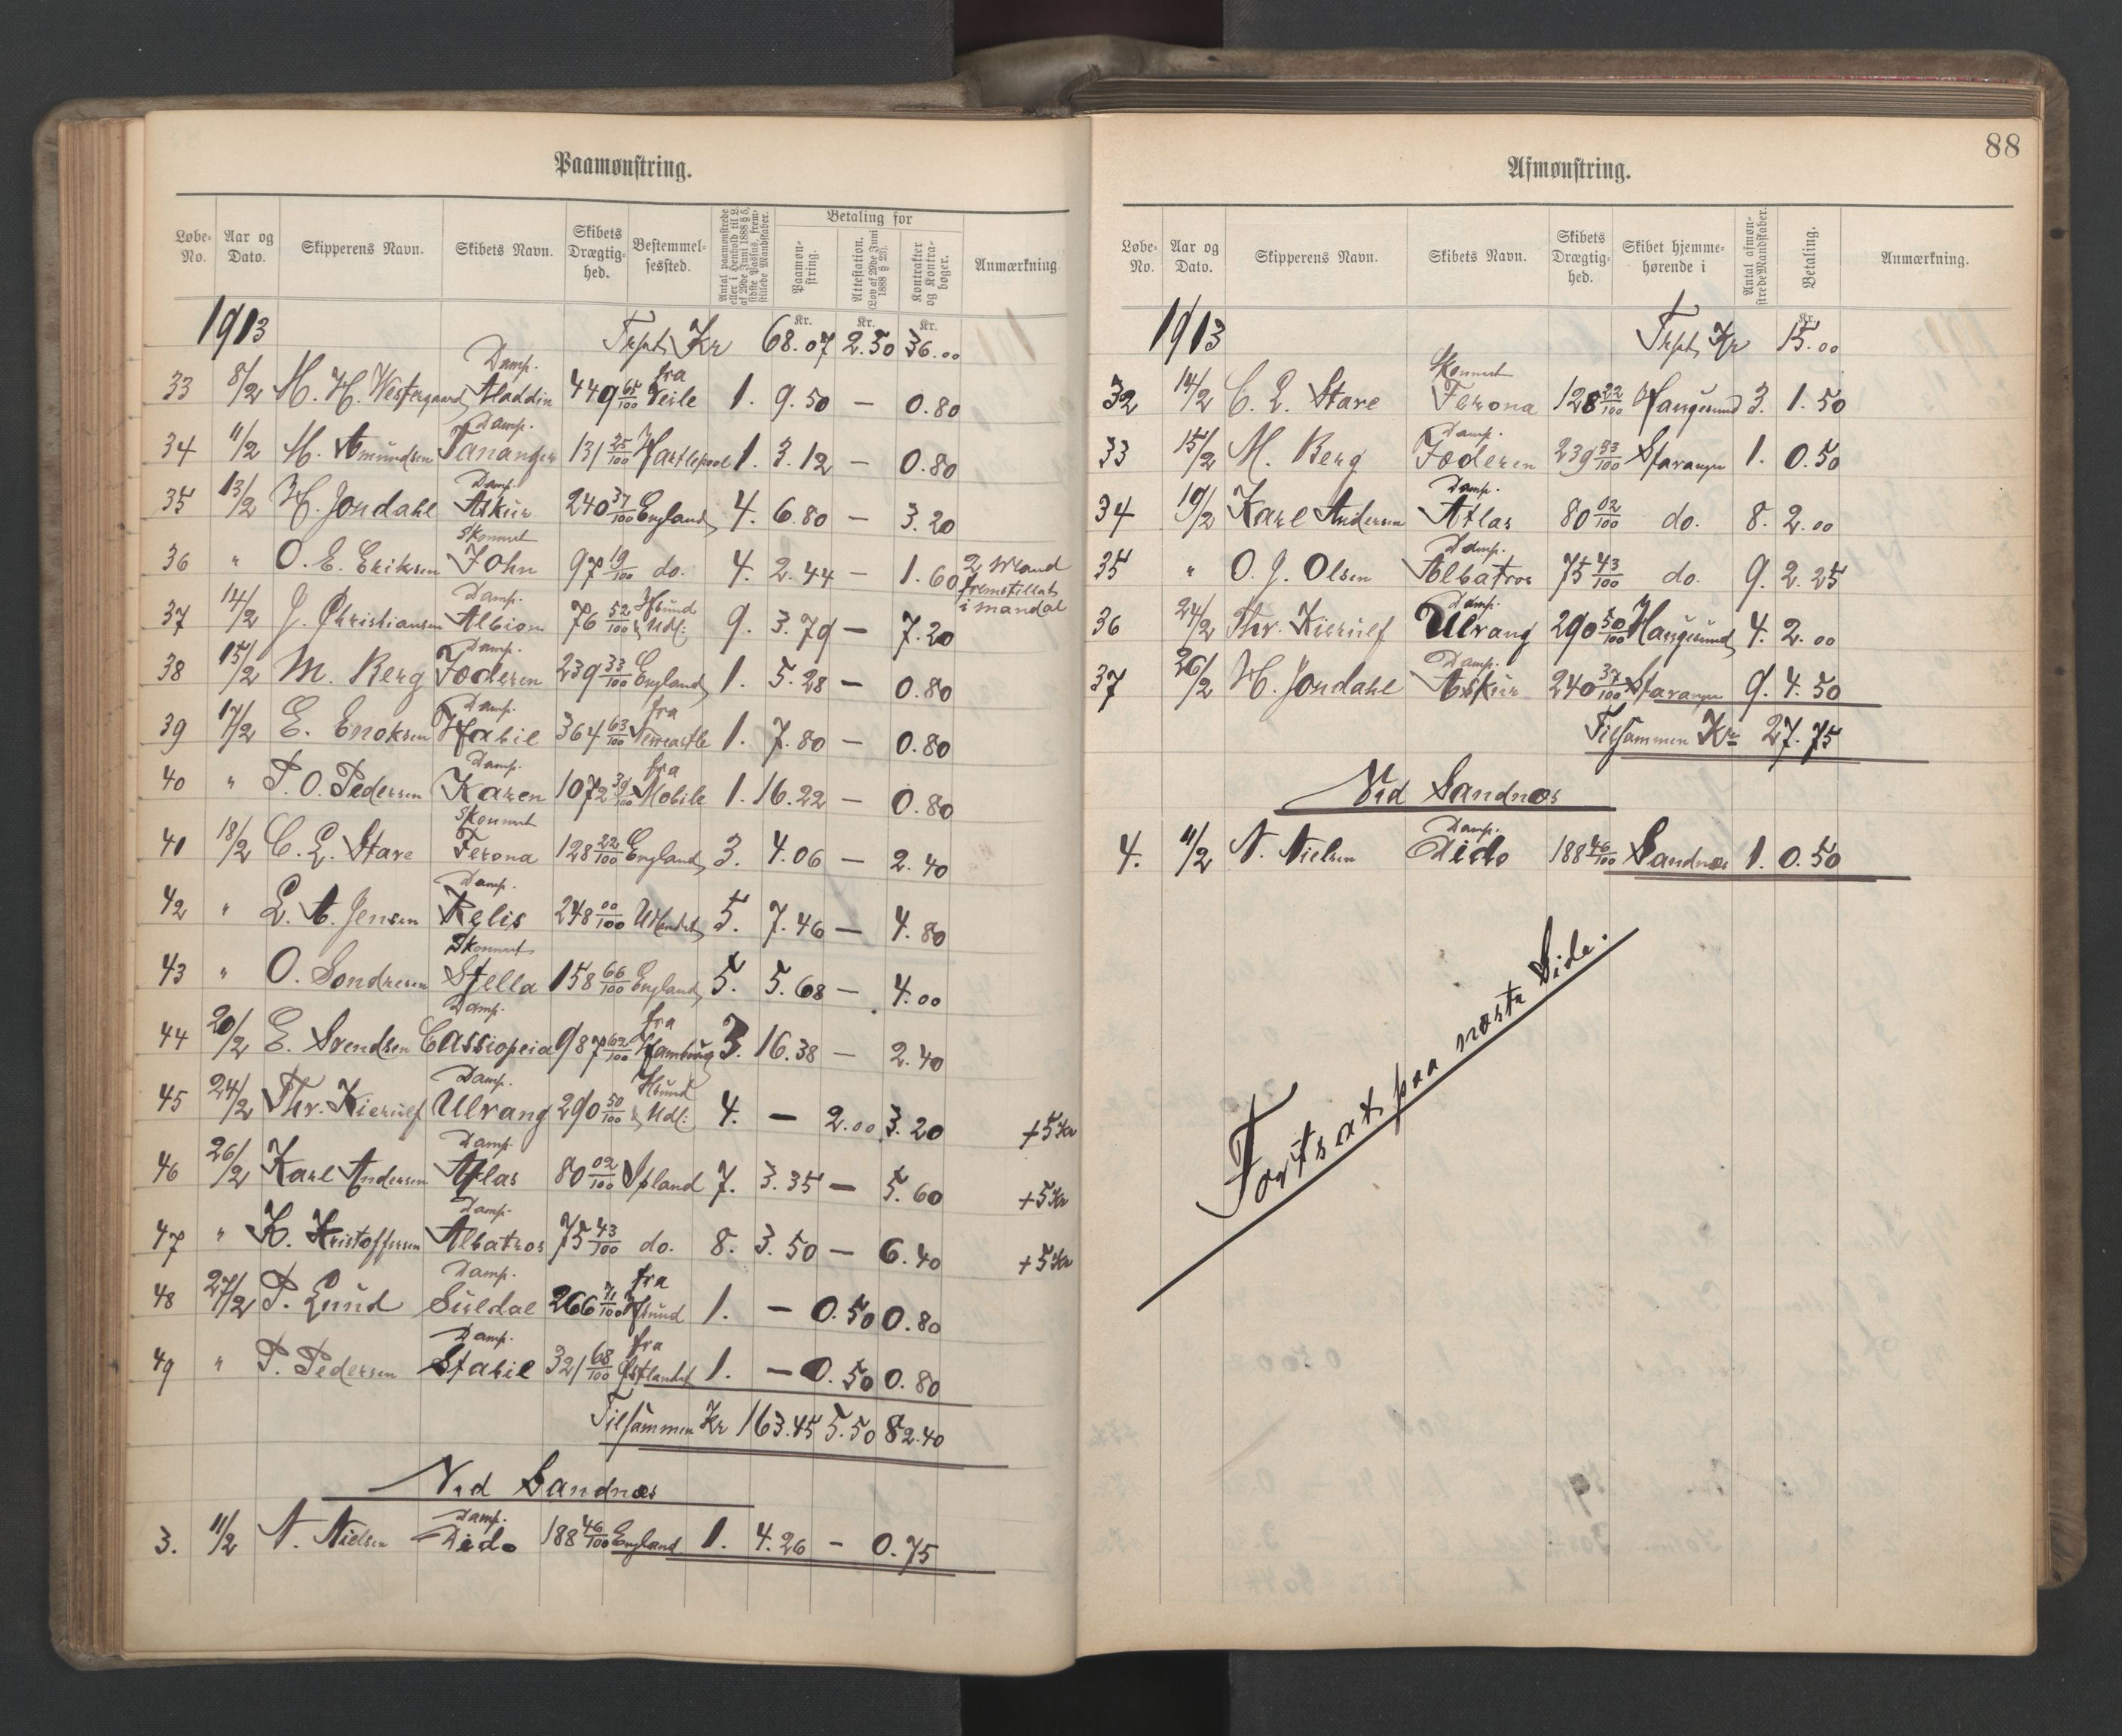 Paamønstring.
Løbe-No. Aar og Dato. Skipperens Navn. Skibets Navn. Skibets Drægtighed. Bestemmelsessted. Antal paamønstrede eller i Henhold til L. af 29de Juni 1888 § 5, sidste Passus, fremstillede Mandskaber. Betaling for Paamønstring. Attestation. (Lov af 29de Juni 1888 § 23). Kontrakter og Kontrabøger. Anmærkning
Kr. Kr. Kr.
1913 Trspt. Kr 68.07 2.50 36.00
33 8/2 M. H. Westergaard Damp. Aladdin 449 65/100 fra Veile 1. 9.50 — 0.80
34 11/2 M. Amundsen Damp. Tananger 131 25/100 Hartlepool 1. 3.12 — 0.80
35 13/2 H. Jondahl Damp. Askur 240 37/100 England 4. 6.80 — 3.20
36 " O. E. Eriksen Skonnert John 97 19/100 do. 4. 2.44 — 1.60 2 Mand fremstillet i Mandal
37 14/2 J. Christiansen Damp. Albion 76 52/100 Hsund & Udl: 9. 3.79 — 7.20
38 15/2 M. Berg Damp. Jæderen 239 33/100 England 1. 5.28 — 0.80
39 17/2 E. Enoksen Damp. Habil 364 63/100 fra Newcastle 1. 7.80 — 0.80
40 " P. O. Pedersen Damp. Karen 1072 39/100 fra Mobile 1. 16.22 — 0.80
41 18/2 C. L. Stare Skonnert Ferona 128 22/100 England 3. 4.06 — 2.40
42 " L. A. Jensen Damp. Relis 248 00/100 Utlandet 5. 7.46 — 4.80
43 " O. Sondresen Skonnert Stella 158 66/100 England 5. 5.68 — 4.00
44 20/2 E. Svendsen Damp. Cassiopeia 987 62/100 fra Hamburg 3. 16.38 — 2.40
45 24/2 Thr. Kierulf Damp. Ulvang 290 50/100 Hsund & Udl: 4. — 2.00 3.20 +5 Kr
46 26/2 Karl Andersen Damp. Atlas 80 02/100 Island 7. 3.35 — 5.60 +5 Kr
47 " K. Kristoffersen Damp. Albatros 75 43/100 do. 8. 3.50 — 6.40 +5 Kr
48 27/2 P. Lund Damp. Suldal 266 71/100 fra Hsund 1. — 0.50 0.80
49 " P. Pedersen Damp. Stabil 321 68/100 fra Østlandet 1. — 0.50 0.80
Tilsammen Kr 163.45 5.50 82.40
Ved Sandnæs
3. 11/2 N. Nielsen Damp. Dido 188 46/100 England 1. 4.26 — 0.75
88
Afmønstring.
Løbe-No. Aar og Dato. Skipperens Navn. Skibets Navn. Skibets Drægtighed. Skibet hjemmehørende i Antal afmønstrede Mandskaber. Betaling. Anmærkning.
Kr.
1913 Trspt. Kr 15.00
32 14/2 C. L. Stare Skonnert Ferona 128 22/100 Haugesund 3. 1.50
33 15/2 M. Berg Damp. Jæderen 239 33/100 Stavanger 1. 0.50
34 19/2 Karl Andersen Damp. Atlas 80 02/100 do. 8. 2.00
35 " O. J. Olsen Damp. Albatros 75 43/100 do. 9. 2.25
36 24/2 Thr. Kierulf Damp. Ulvang 290 50/100 Haugesund 4. 2.00
37 26/2 H. Jondahl Damp. Askur 240 37/100 Stavanger 9. 4.50
Tilsammen Kr 27.75
Ved Sandnæs
4. 11/2 N. Nielsen Damp. Dido 188 46/100 Sandnæs 1. 0.50
Fortsat paa næste Side.